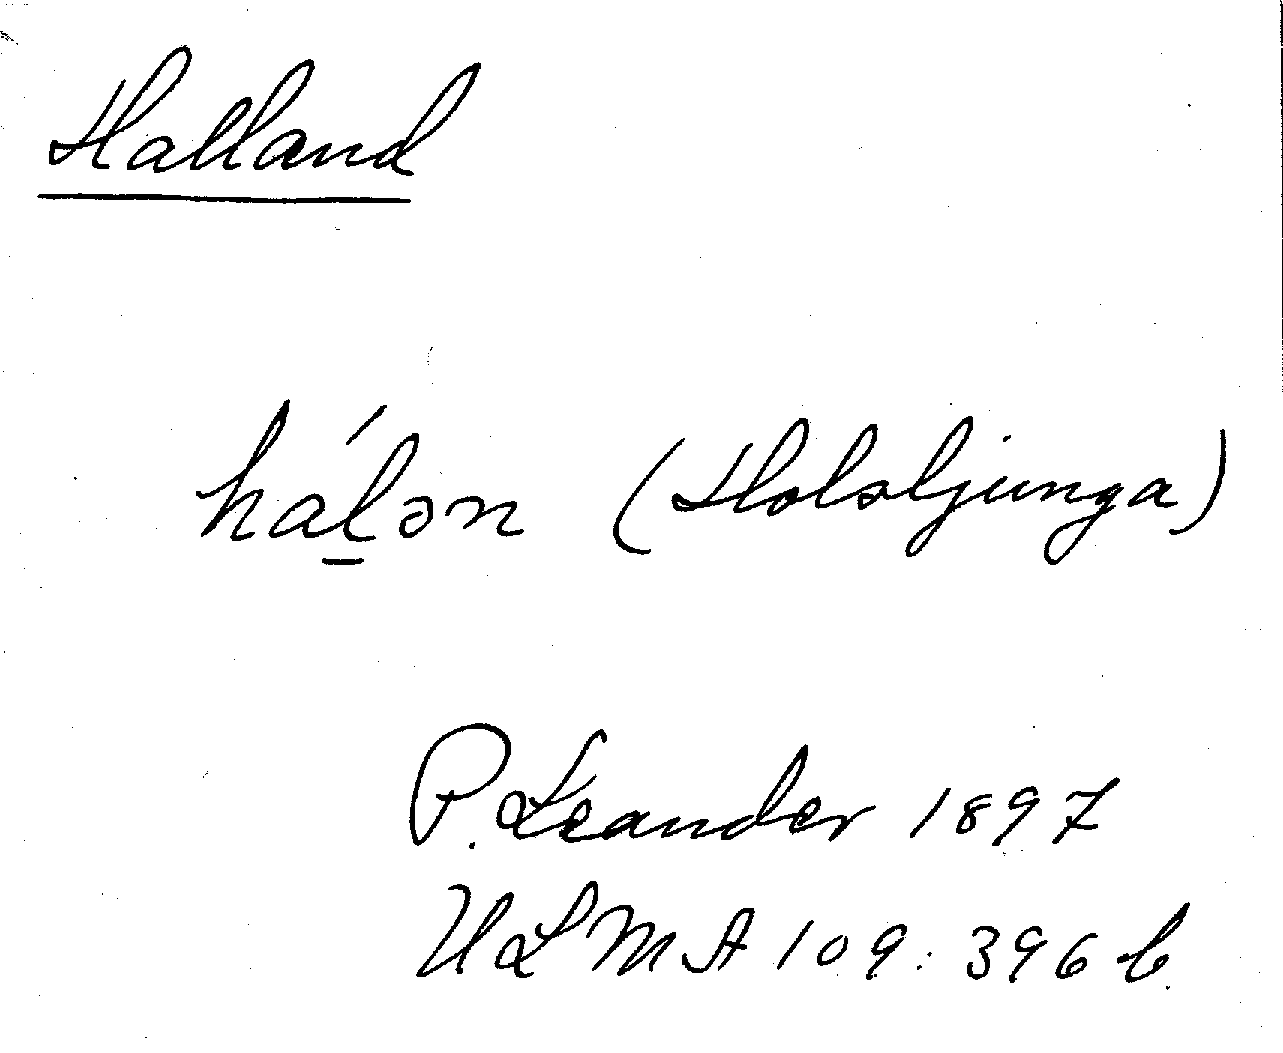 Halland
hál̲ən (Holsljunga)
P. Leander 1897
ULMA 109:396 b.